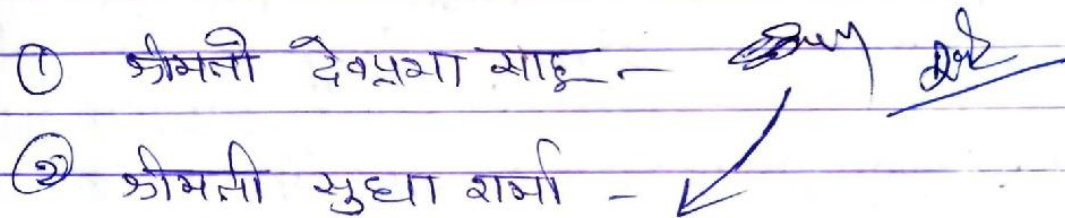 ① श्रीमती देवप्रभा साहू -
② श्रीमती सुधा शर्मा -